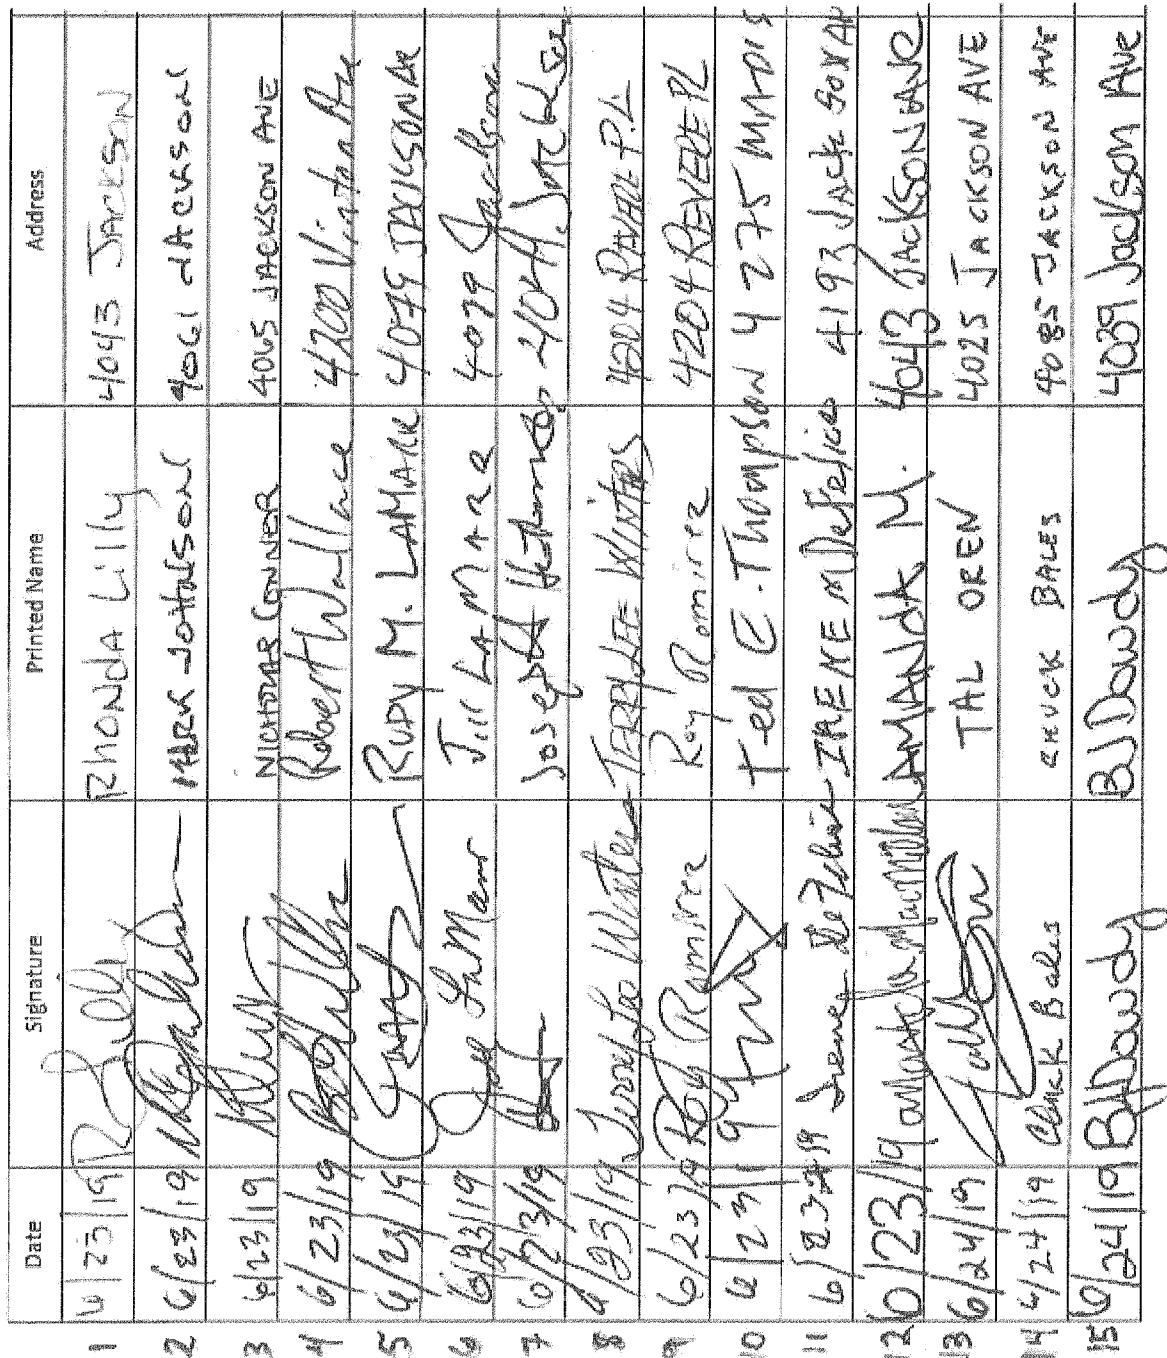 Date Signature Printed Name Address
1 6/23/19 R Lilly RHONDA LILLY 4043 JACKSON
2 6/23/19 MARK JOHNSON 4061 JACKSON
3 6/23/19 CONNER 4065 JACKSON AVE
4 6/23/19 Robert Wallace 4200 Vinton Ave
5 6/23/19 RUDY M. LAMARR 4079 JACKSON AVE
6 6/23/19 Jill LaMarr Jill LAMARR 4079 Jackson
7 6/23/19 Joseph 4044 Jackson
8 6/23/19 Terry Lee Winters TERRY LEE WINTERS 4204 P.L.
9 6/23/19 Roy Ramirez Roy Ramirez 4204 REVERE PL
10 6/23/19 Ted E. THOMPSON 4275 MADIS
11 6/23/19 Irene DeFelice IRENE M DeFelice 4193 Jackson AV
12 6/23/19 Amanda Macmillan AMANDA M. 4043 JACKSON AVE
13 6/24/19 TAL OREN 4025 JACKSON AVE
14 6/24/19 Chuck Bales CHUCK BALES 4085 JACKSON AVE
15 6/24/19 BJ Dowdy BJ Dowdy 4089 Jackson Ave